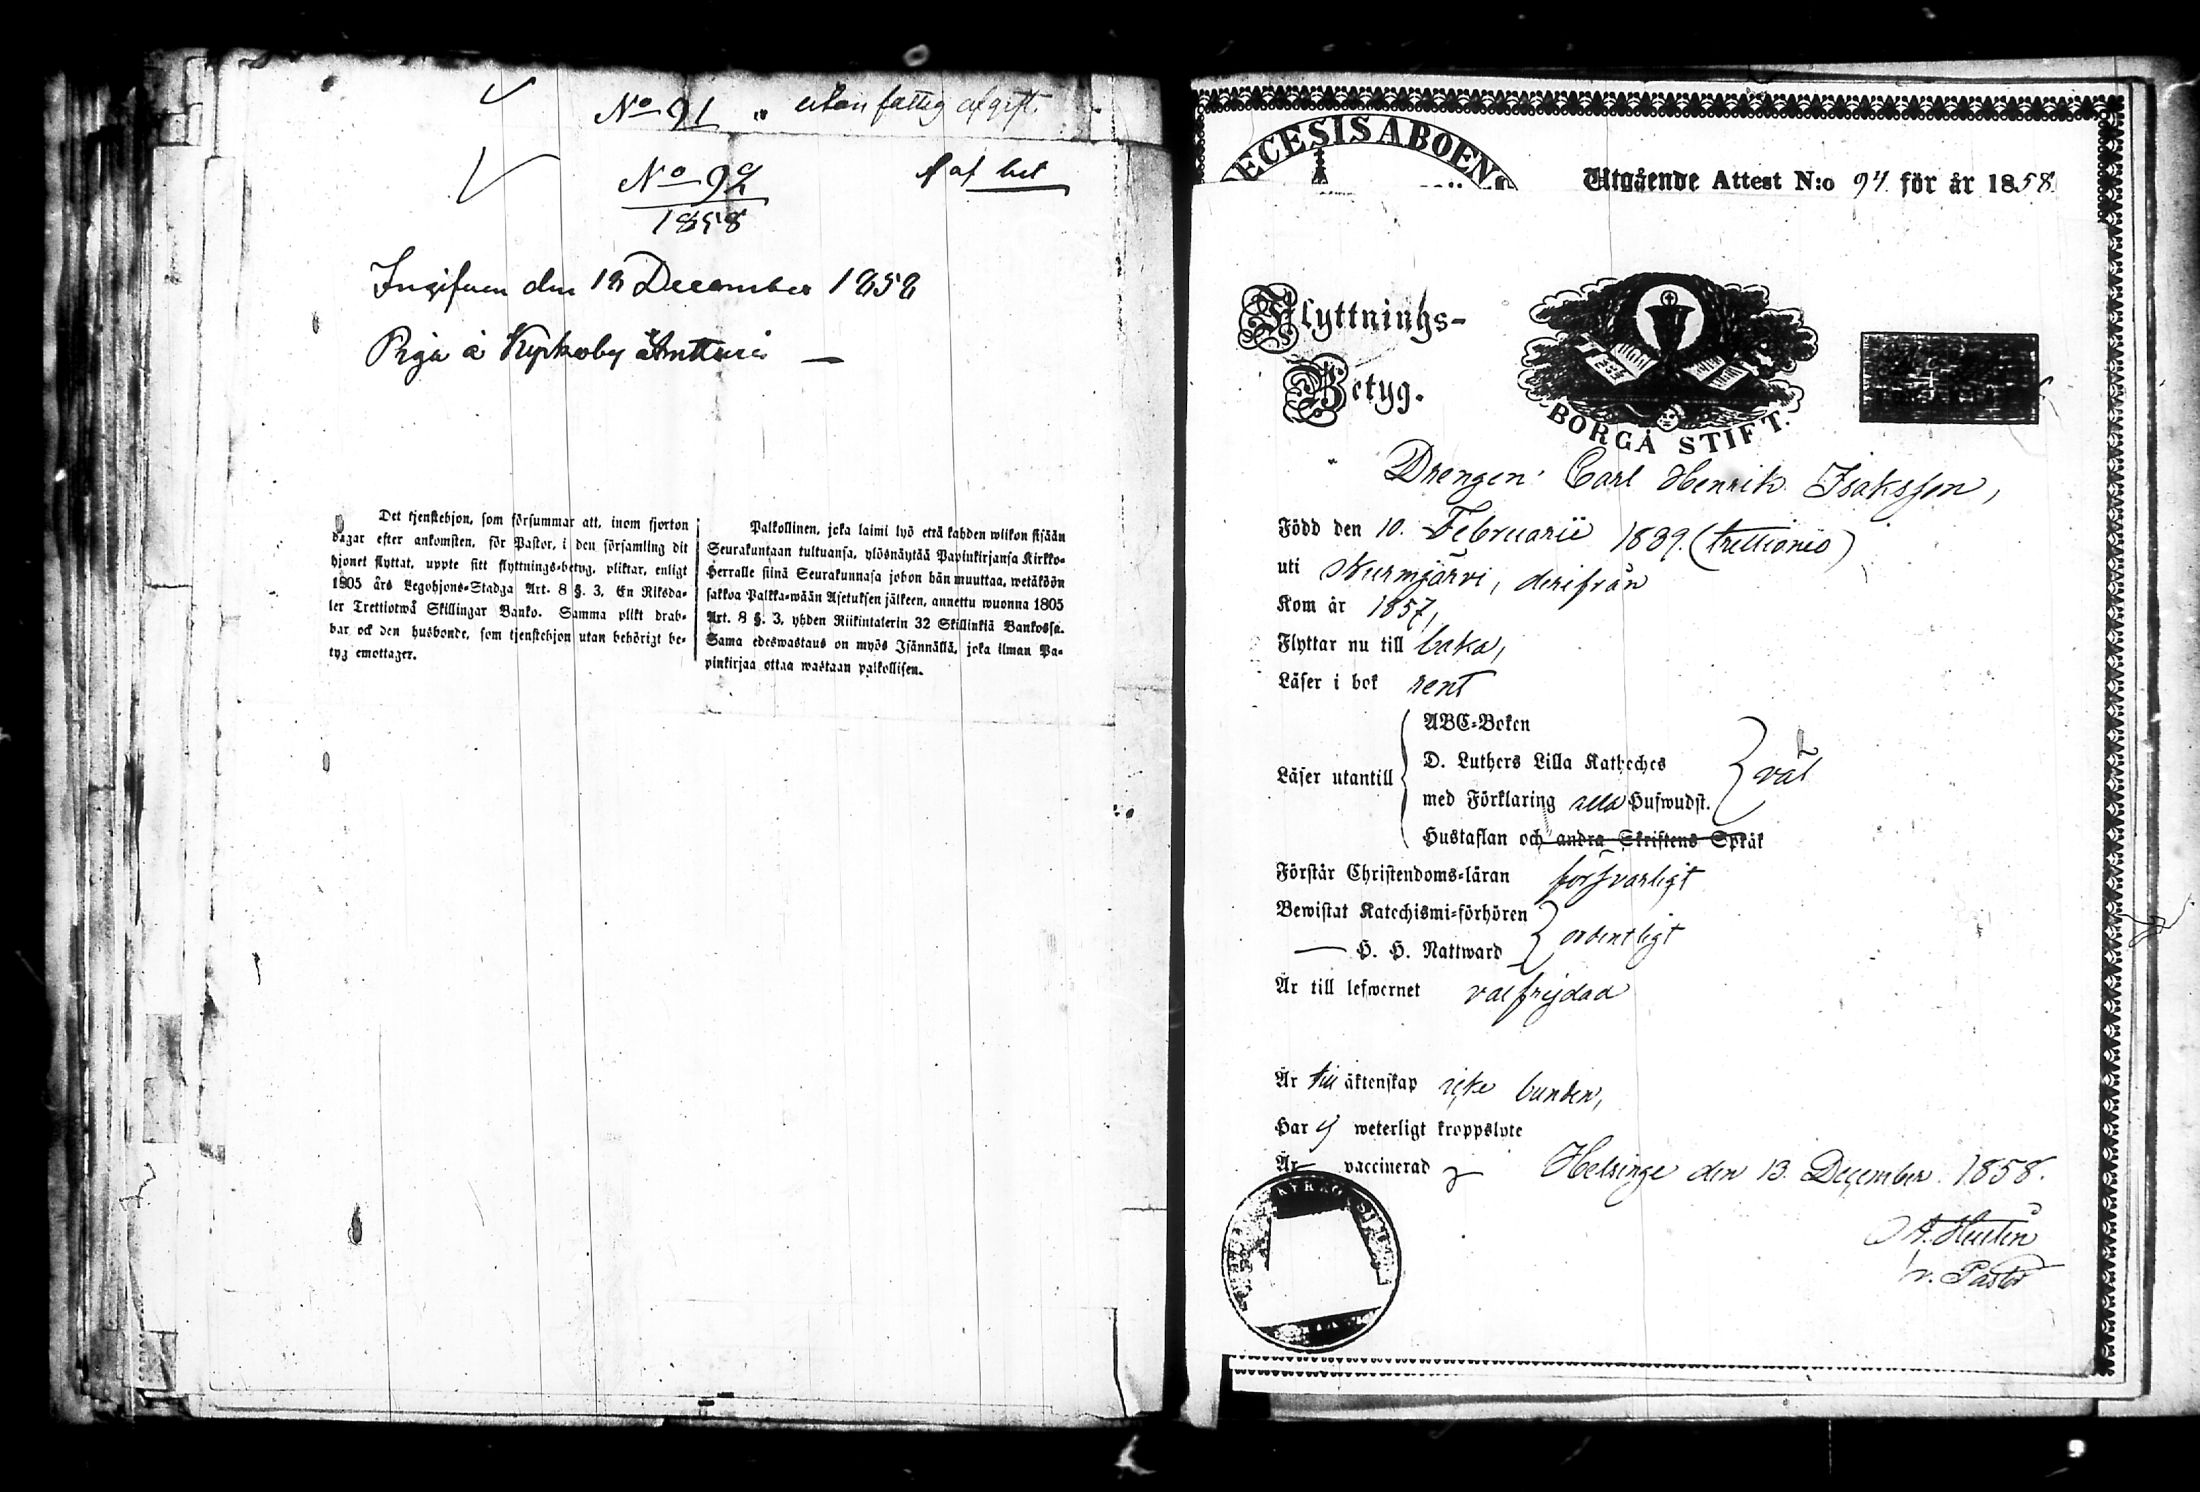 No 91 utan fattig afgift
No 92
1858
af bet
Ingifven den 18 December 1858
Piga å Kyrkoby
Det tjenstehjon, som försummar att, inom fjorton
dagar efter ankomsten, för Pastor, i den församling dit
hjonet flyttat, uppte sitt flyttnings-betyg, pliktar, enligt
1805 års Legohjons-Stadga Art. 8 §. 3, En Riksda-
ler Trettiotwå Skillingar Banko. Samma plikt drab-
bar ock den husbonde, som tjenstehjon utan behörigt be-
tyg emottager.
Palkollinen, joka laimi lyö että kahden wiikon sisään
Seurakuntaan tultuansa, ylösnäytää Papinkirjansa Kirkko-
Herralle siinä Seurakunnasa johon hän muuttaa, wetäköön
sakkoa Palkka-wään Asetuksen jälkeen, annettu wuonna 1805
Art. 8 §. 3, yhden Riikintalerin 32 Skillinkiä Bankossa.
Sama edeswastaus on myös Isännällä, joka ilman Pa-
pinkirjaa ottaa wastaan palkollisen.
ECESIS ABOEN
Utgående Attest N:o 94 för år 1858.
Flyttnings-
Betyg.
BORGÅ STIFT.
Drengen Carl Henrik Isaksson,
Född den 10. Februarii 1839. (trettionio)
uti Nurmijärvi, derifrån
Kom år 1857,
Flyttar nu till baka,
Läser i bok rent
Läser utantill
ABC-Boken
D. Luthers Lilla Katheches
med Förklaring alla Hufwudst.
Hustaflan och andra Skriftens Språk
väl
Förstår Christendoms-läran försvarligt
Bewistat Katechismi-förhören
— H. H. Nattward
ordentligt
Är till lefwernet välfrejdad
Är till äktenskap icke bunden,
Har ej weterligt kroppslyte
Är vaccinerad
Helsinge den 13. December 1858.
v. Pastor